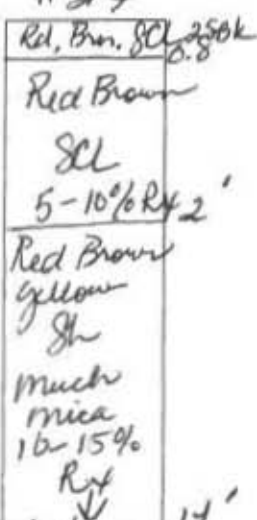 Rd, Brn, SCL 25Bk
0.8
Red Brown
SCL
5-10% Rx 2'
Red Brown
yellow
Sh
much
mica
10-15%
Rx
↓
14'